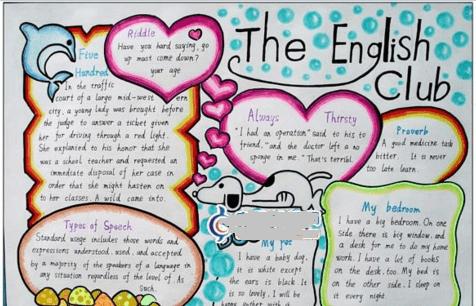 The English
Club
Riddle
Have you hard saying, go
up most come down?
your age
Five
Hundred
In the traffic
court of a large mid-west ern
city, a young lady was brought before
the judge to answer a ticket given
her for driving through a red light.
She explained to his honor that she
was a school teacher and requested an
immediate disposal of her case in
order that she might hasten on
to her classes. A wild came into.
Always Thirsty
"I had an operation" said to his to
friend, "and the doctor left a no
sponge in me. "That's terribl.
Proverb
A good medicine task
bitter. It is never
too late learn.
Types of Speech
Standard usage includes those words and
expressions understood, used, and accepted
by a majority of the speakers of a language in
any situation regardless of the level of. As
Such.
My pet
I have a baby dog,
it is white except
the ears is black. It
is so lovely. I will be
My bedroom
I have a big bedroom. On one
side there is big window, and
a desk for me to do my home
work. I have a lot of books
on the desk, too. My bed is
on the other side. I sleep on
it every night